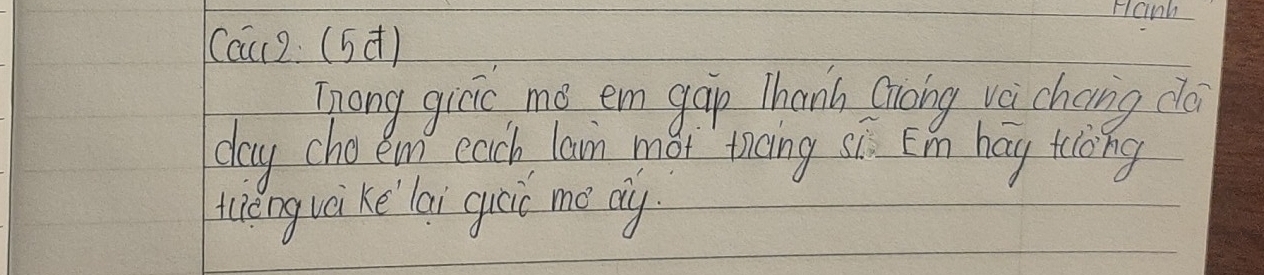 Hạnh
Câu 2: (5đ)
Trong giấc mơ em gặp Thánh Gióng và chàng đã
dạy cho em cách làm một tráng sĩ. Em hãy tưởng
tượng và kể lại giấc mơ ấy.